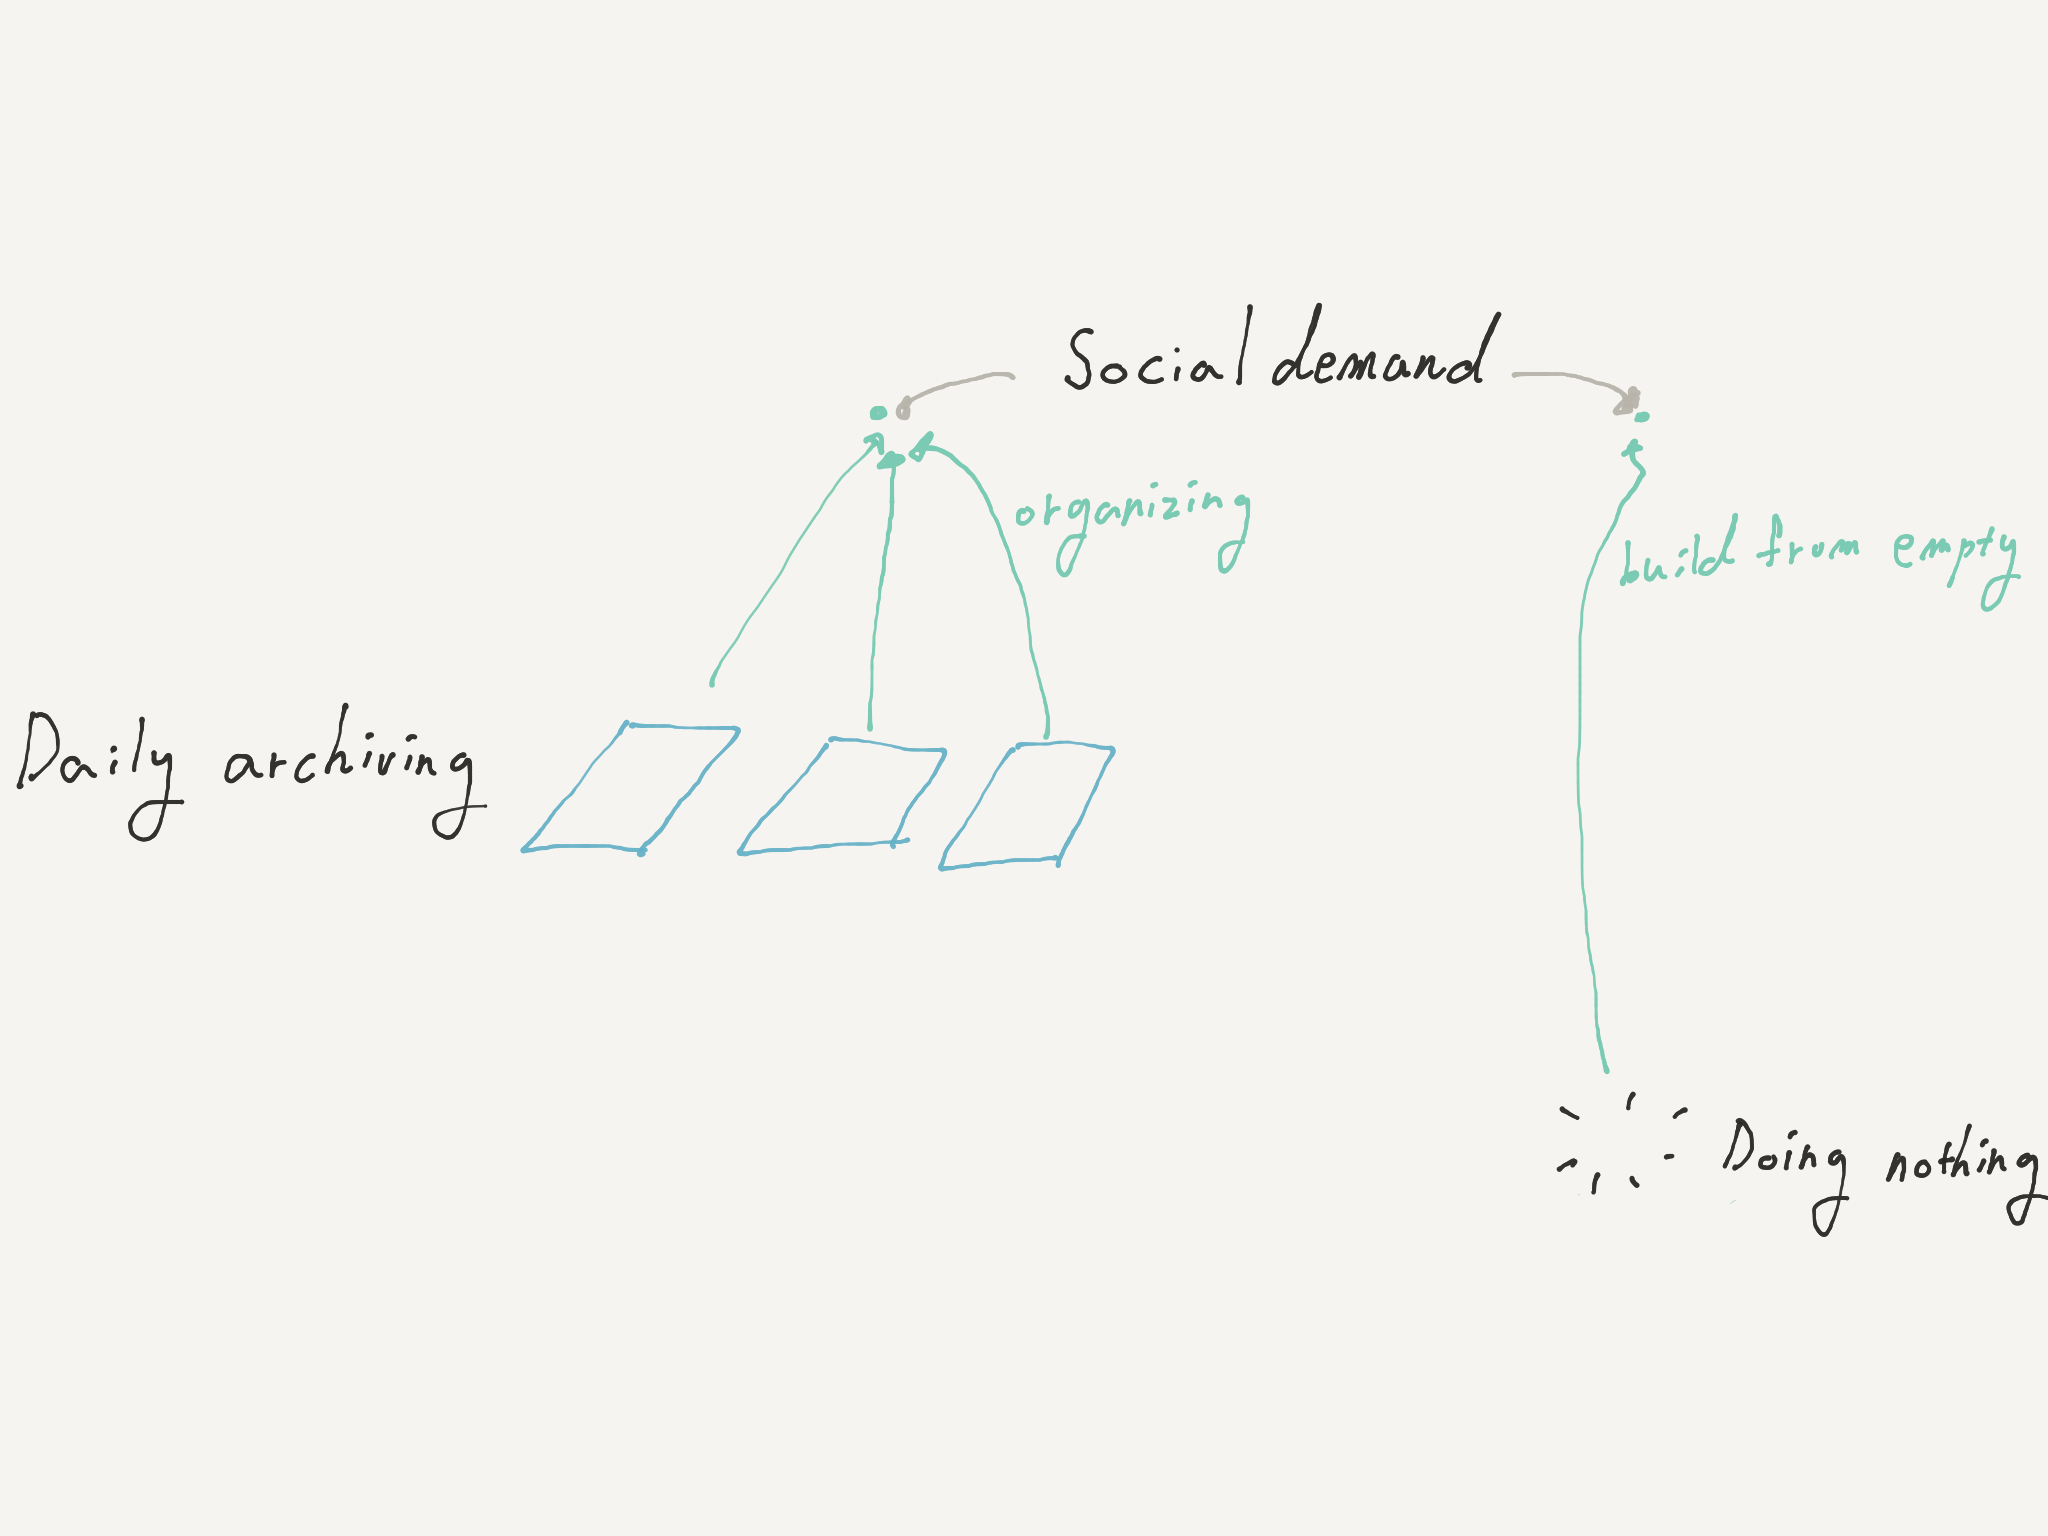 Social demand
organizing
build from empty
Daily archiving
Doing nothing